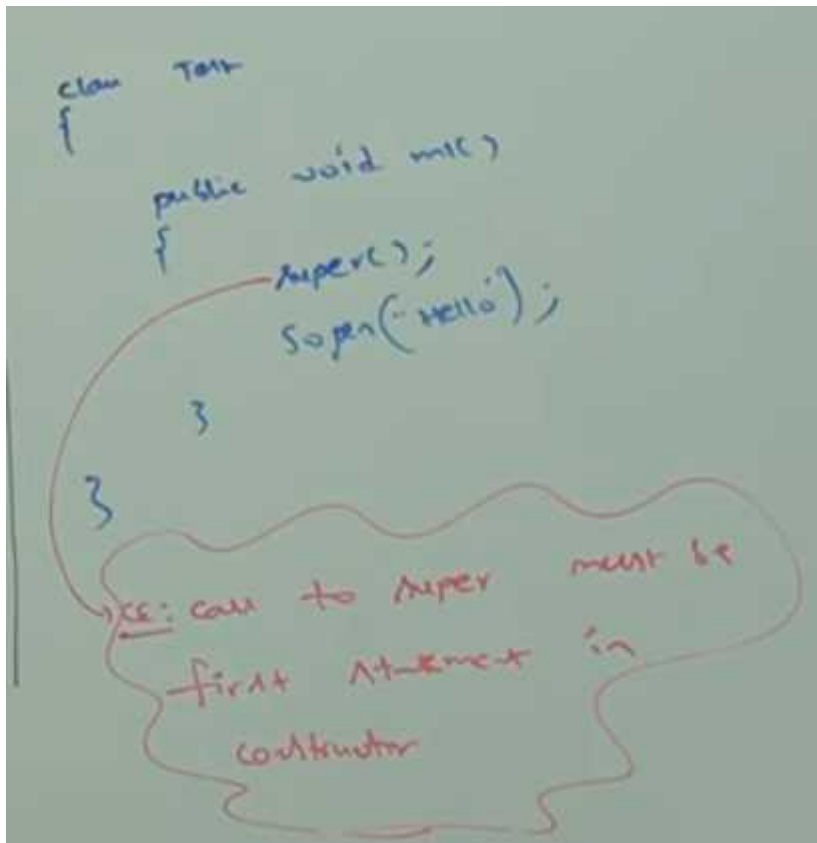 class Test
{
public void m1()
{
super();
Sopln("Hello");
}
}
CE: call to super must be
first statement in
constructor